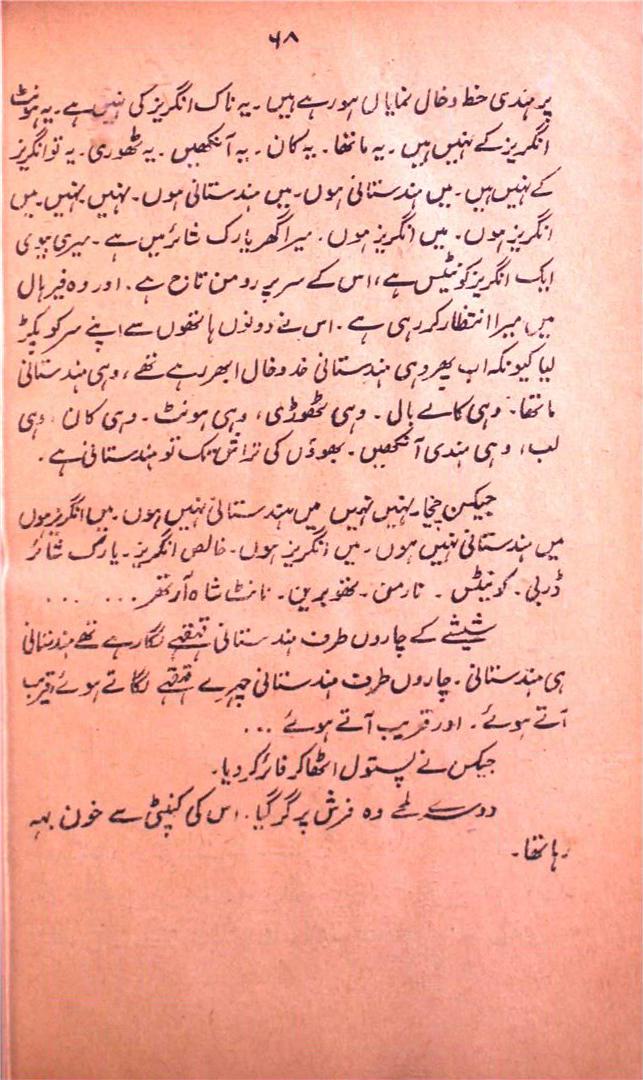 ۶۸
پر ہندی خط و خال نمایاں ہو رہے ہیں۔ یہ ناک انگریز کی نہیں ہے۔ یہ ہونٹ
انگریز کے نہیں ہیں۔ یہ ماتھا۔ یہ کان۔ یہ آنکھیں۔ یہ ٹھوری۔ یہ تو انگریز
کے نہیں ہیں۔ میں ہندستانی ہوں۔ میں ہندستانی ہوں۔ نہیں نہیں۔ میں
انگریز ہوں۔ میں انگریز ہوں۔ میرا گھر یارک شائر میں ہے۔ میری بیوی
ایک انگریز کونٹیس ہے، اس کے سر پر رومن تاج ہے۔ اور وہ فیر ہال
میں میرا انتظار کر رہی ہے۔ اس نے دونوں ہاتھوں سے اپنے سر کو پکڑ
لیا کیونکہ اب پھر وہی ہندستانی خد و خال ابھر رہے تھے، وہی ہندستانی
ماتھا۔ وہی کالے بال۔ وہی ٹھوڑی، وہی ہونٹ۔ وہی کان۔ وہی
لب، وہی ہندی آنکھیں۔ بھوؤں کی تراش تک تو ہندستانی ہے۔
جیکسن چیخا۔ نہیں نہیں میں ہندستانی نہیں ہوں۔ میں انگریز ہوں
میں ہندستانی نہیں ہوں۔ میں انگریز ہوں۔ خالص انگریز۔ یارک شائر
ڈربی۔ کونٹیس۔ نارمن۔ نائٹ شاہ آرتھر... ...
شیشے کے چاروں طرف ہندستانی قہقہے لگا رہے تھے ہندستانی
ہی ہندستانی۔ چاروں طرف ہندستانی چہرے قہقہے لگاتے ہوئے، قریب
آتے ہوئے۔ اور قریب آتے ہوئے ...
جیکسن نے پستول اٹھا کر فائر کر دیا۔
دوسرے لمحے وہ فرش پر گر گیا۔ اس کی کنپٹی سے خون بہہ
رہا تھا۔